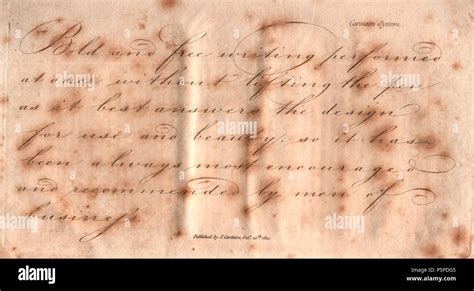 Carstairs System.
Bold and free writing performed
at ease without lifting the pen
as it best answers the design
for use and beauty, so it has
been always most encouraged
and recommended by men of
business
Published by J. Carstairs, 
alamy
Image ID: J5PDG5
www.alamy.com